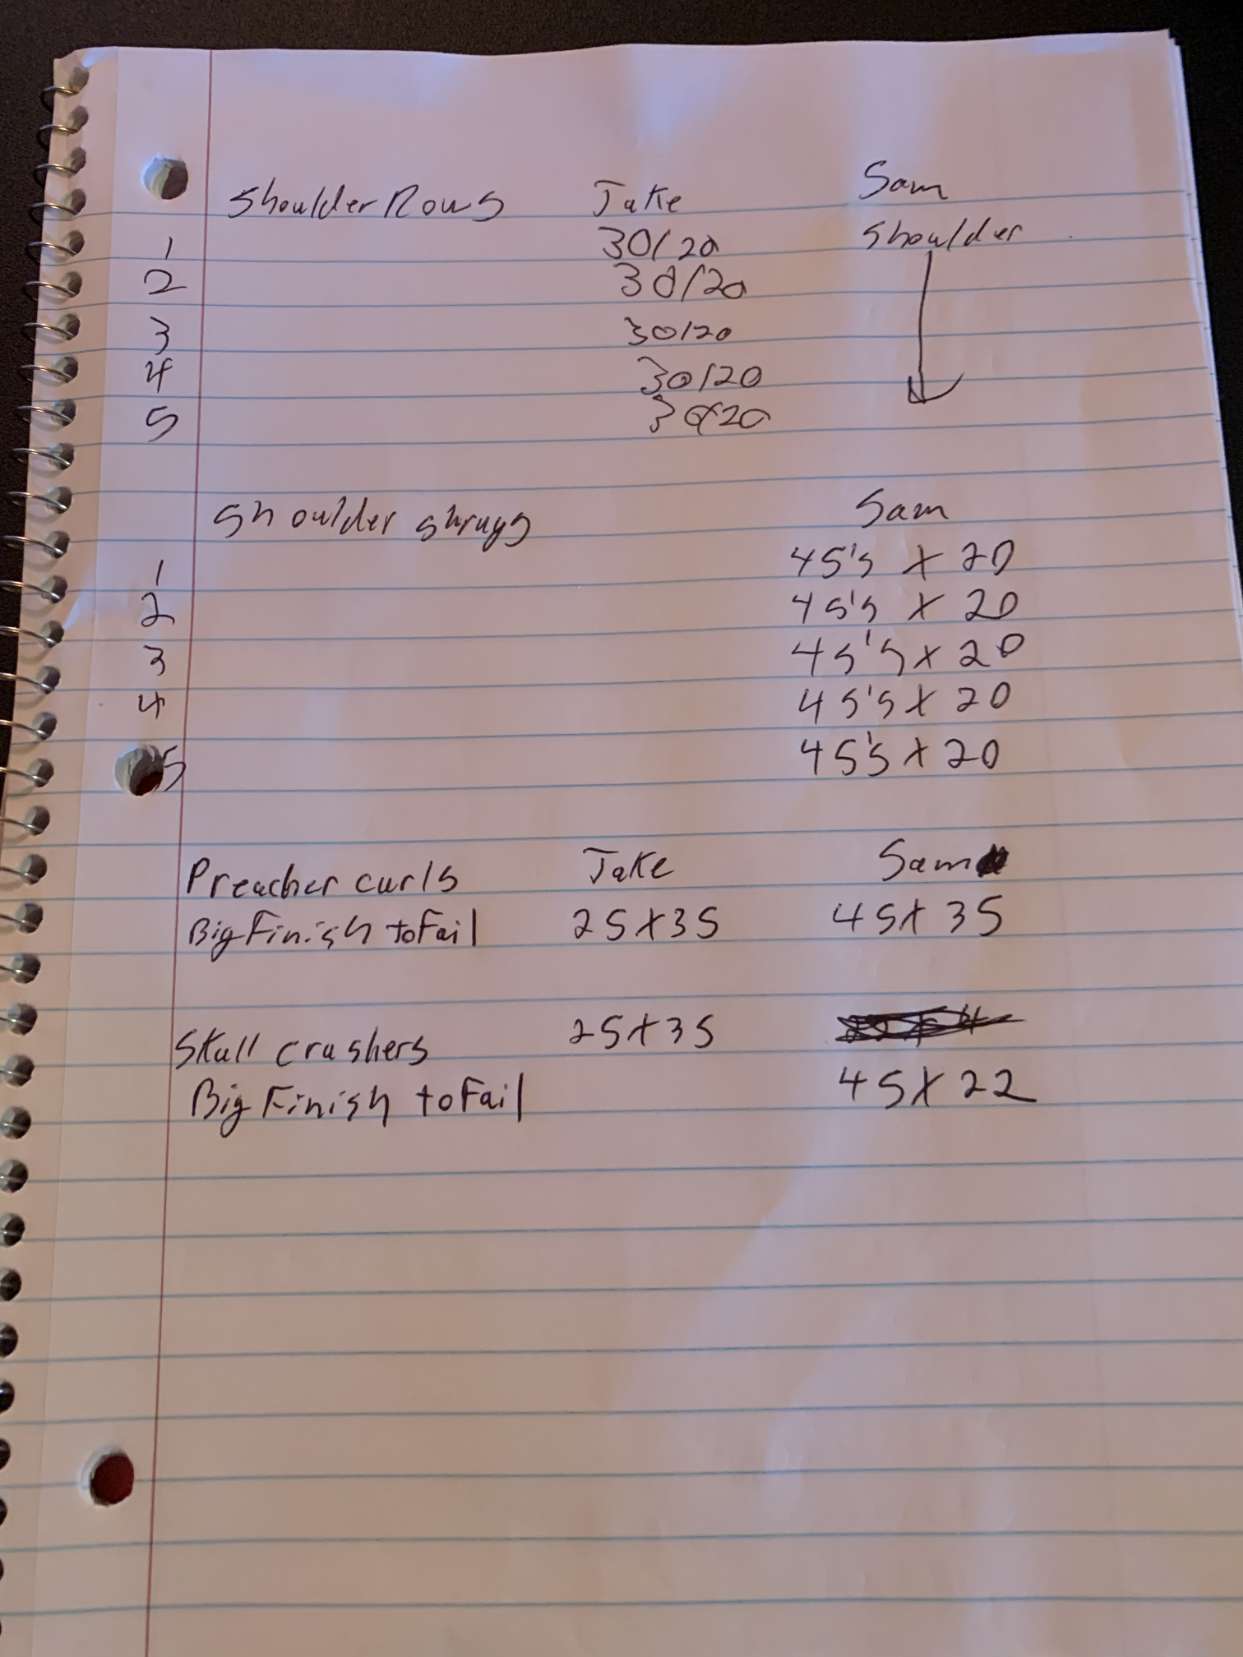 Shoulder Rows Jake Sam
1 30/20 Shoulder
2 30/20
3 30/20
4 30/20
5 30/20
Shoulder shrugs Sam
1 45's x 20
2 45's x 20
3 45's x 20
4 45's x 20
5 45's x 20
Preacher curls Jake Sam
Big Finish to Fail 25x35 45x35
Skull crushers 25x35
Big Finish to Fail 45x22